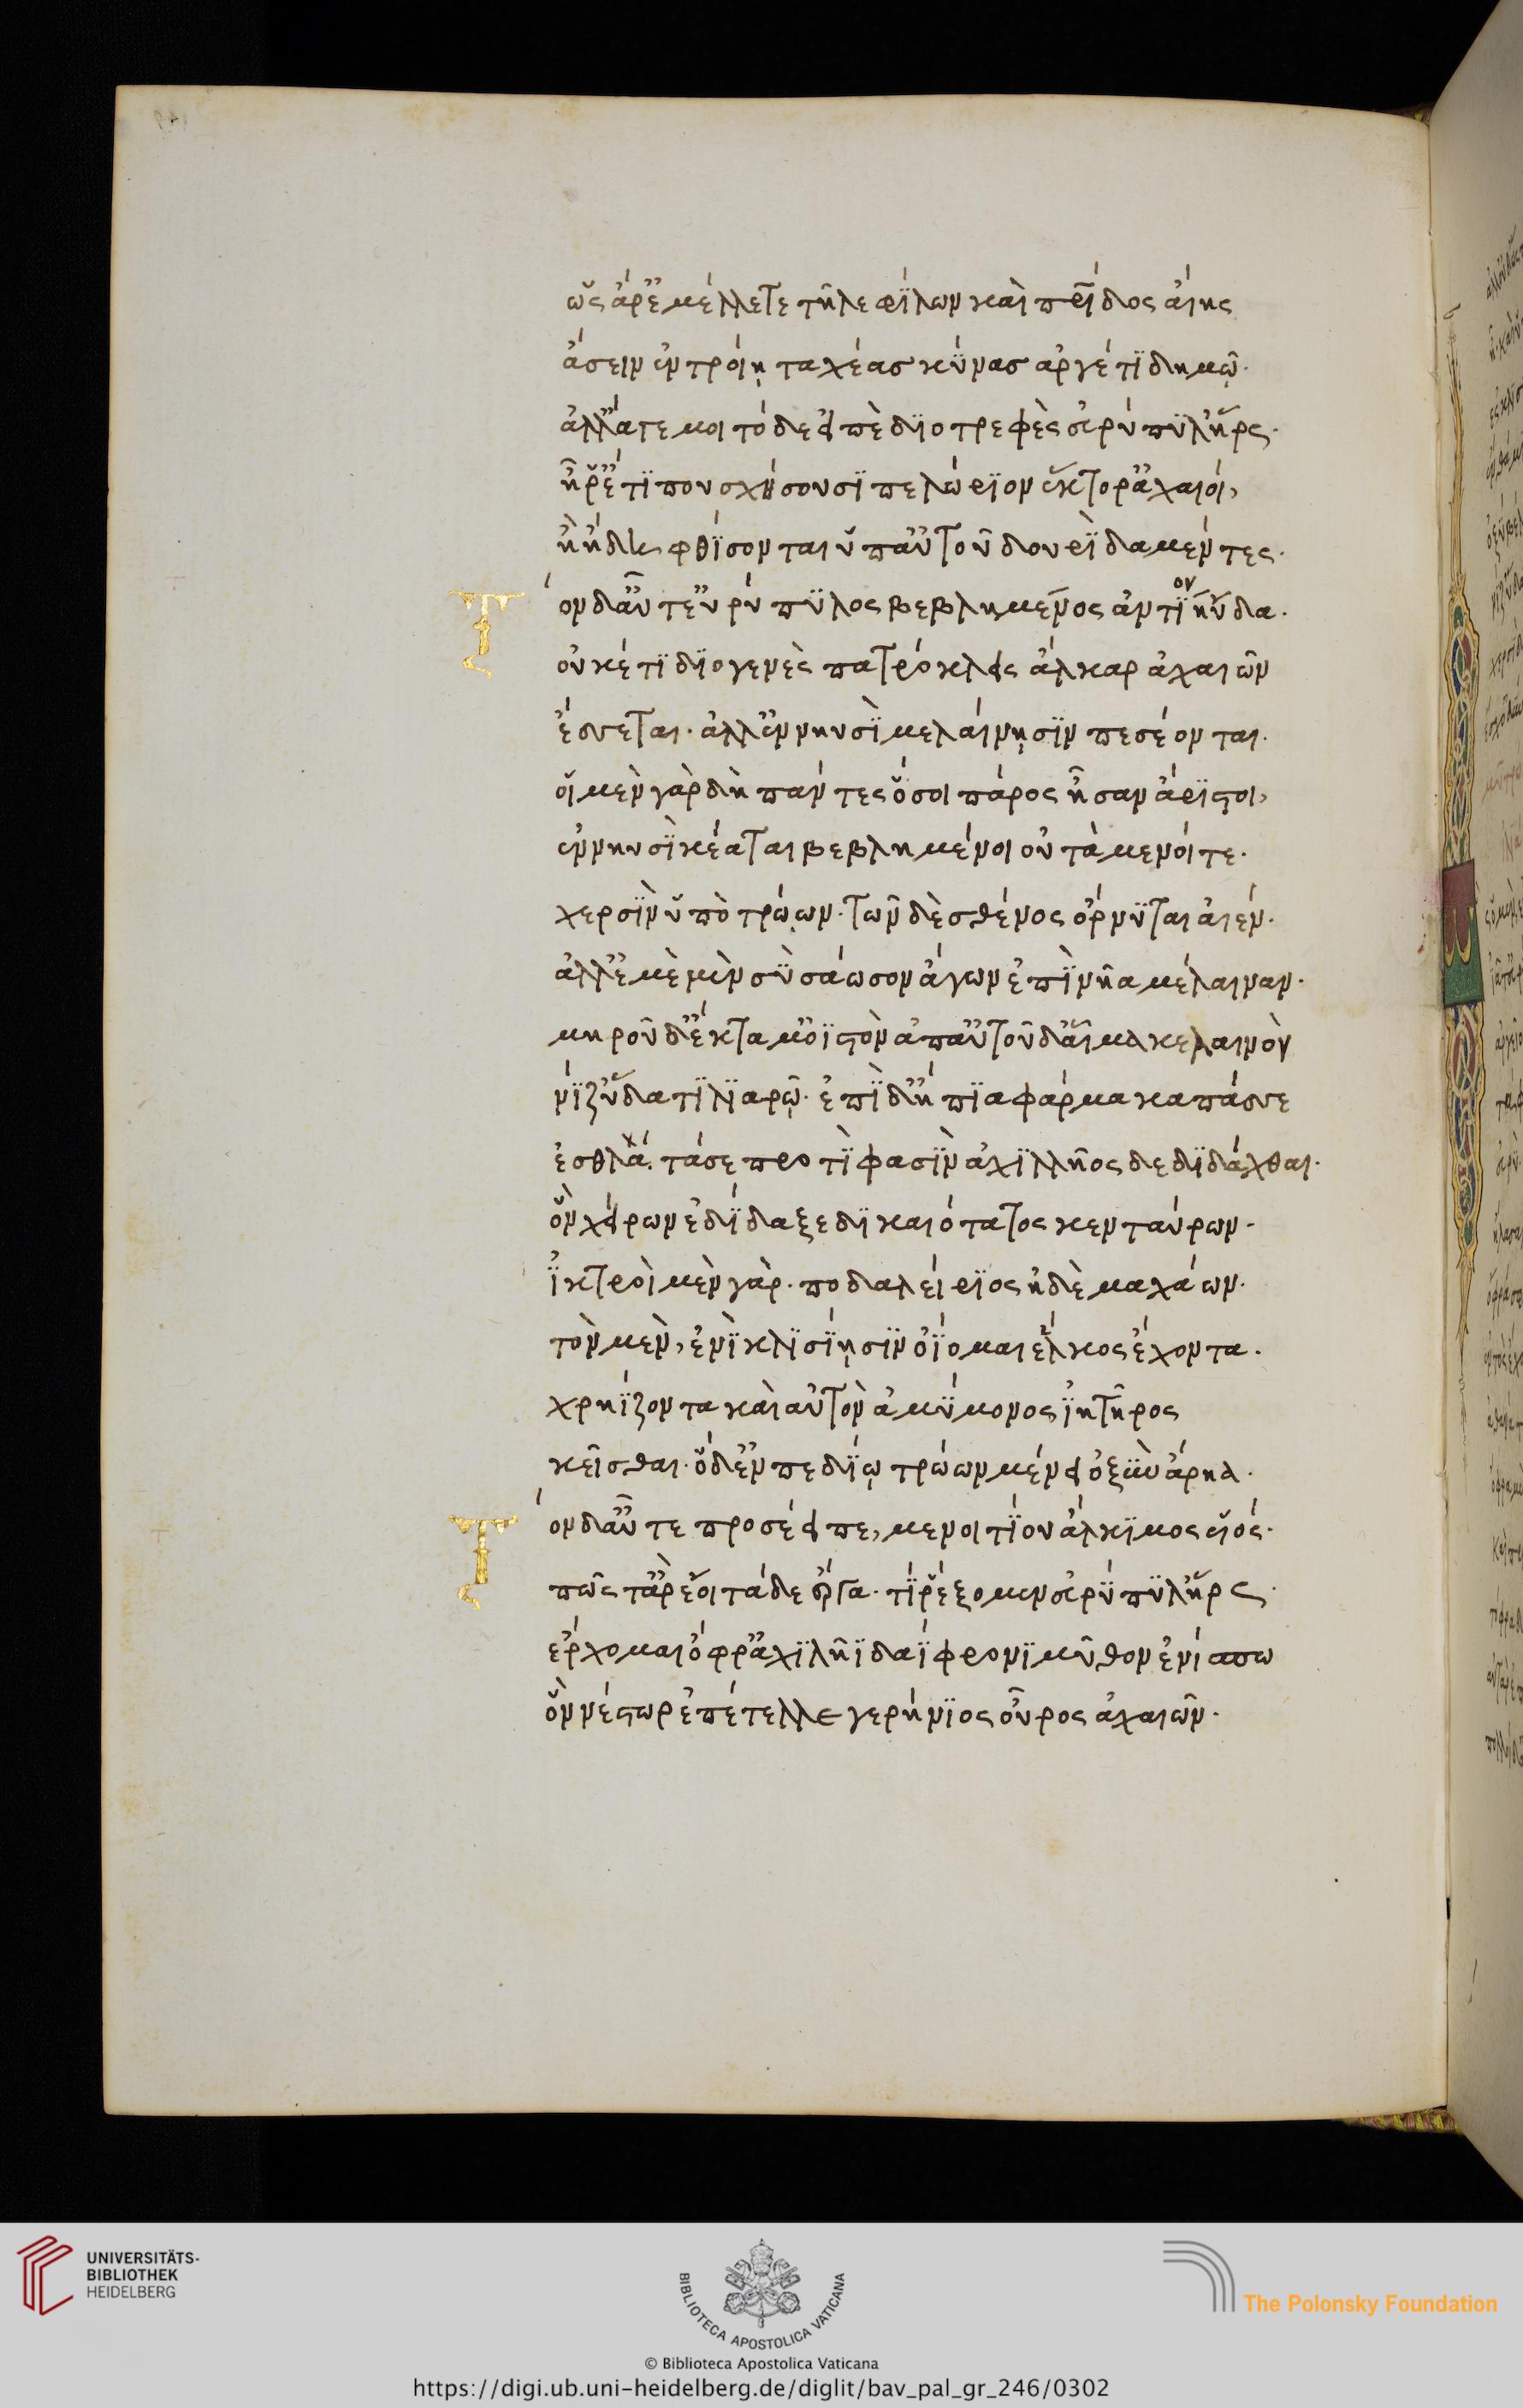 ὣς ἄρ' ἐμέλλετε τῆλε φίλων καὶ πατρίδος αἴης
ἄσειν ἐν τροίῃ ταχέας κύνας ἀργέτι δημῷ.
ἀλλ' ἄγε μοι τόδε εἰπὲ διοτρεφὲς εὐρύπυλ' ἥρως.
ἦ ῥ' ἔτι που σχήσουσι πελώριον ἕκτορ' ἀχαιοί,
ἢ ἤδη φθίσονται ὑπ' αὐτοῦ δουρὶ δαμέντες.
Τὸν δ' αὖτ' εὐρύπυλος βεβλημένος ἀντίον ηὔδα.
οὐκέτι διογενὲς πατρόκλεις ἄλκαρ ἀχαιῶν
ἔσσεται. ἀλλ' ἐν νηυσὶ μελαίνῃσιν πεσέονται.
οἱ μὲν γὰρ δὴ πάντες ὅσοι πάρος ἦσαν ἄριστοι,
ἐν νηυσὶ κέαται βεβλημένοι οὐτάμενοί τε.
χερσὶν ὑπὸ τρώων. τῶν δὲ σθένος ὄρνυται αἰέν.
ἀλλ' ἐμὲ μὲν σὺ σάωσον ἄγων ἐπὶ νῆα μέλαιναν.
μηροῦ δ' ἔκταμ' ὀϊστὸν ἀπ' αὐτοῦ δ' αἷμα κελαινὸν
νίζ' ὕδατι λιαρῷ. ἐπὶ δ' ἤπια φάρμακα πάσσε
ἐσθλά. τά σε προτί φασὶν ἀχιλλῆος δεδιδάχθαι.
ὃν χείρων ἐδίδαξε δικαιότατος κενταύρων.
ἰητροὶ μὲν γὰρ. ποδαλείριος ἠδὲ μαχάων.
τὸν μὲν, ἐνὶ κλισίῃσιν ὀΐομαι ἕλκος ἔχοντα.
χρηΐζοντα καὶ αὐτὸν ἀμύμονος ἰητῆρος
κεῖσθαι. ὁ δ' ἐν πεδίῳ τρώων μένει ὀξὺν ἄρηα.
Τὸν δ' αὖτε προσέειπε, μενοιτίου ἄλκιμος υἱός.
πῶς τ' ἂρ ἔοι τάδε ἔργα. τί ῥέξομεν εὐρύπυλ' ἥρως.
ἔρχομαι ὄφρ' ἀχιλῆϊ δαΐφρονι μῦθον ἐνίσπω
ὃν νέστωρ ἐπέτελλε γερήνιος οὖρος ἀχαιῶν.
UNIVERSITÄTS-
BIBLIOTHEK
HEIDELBERG
BIBLIOTECA APOSTOLICA VATICANA
The Polonsky Foundation
© Biblioteca Apostolica Vaticana
https://digi.ub.uni-heidelberg.de/diglit/bav_pal_gr_246/0302